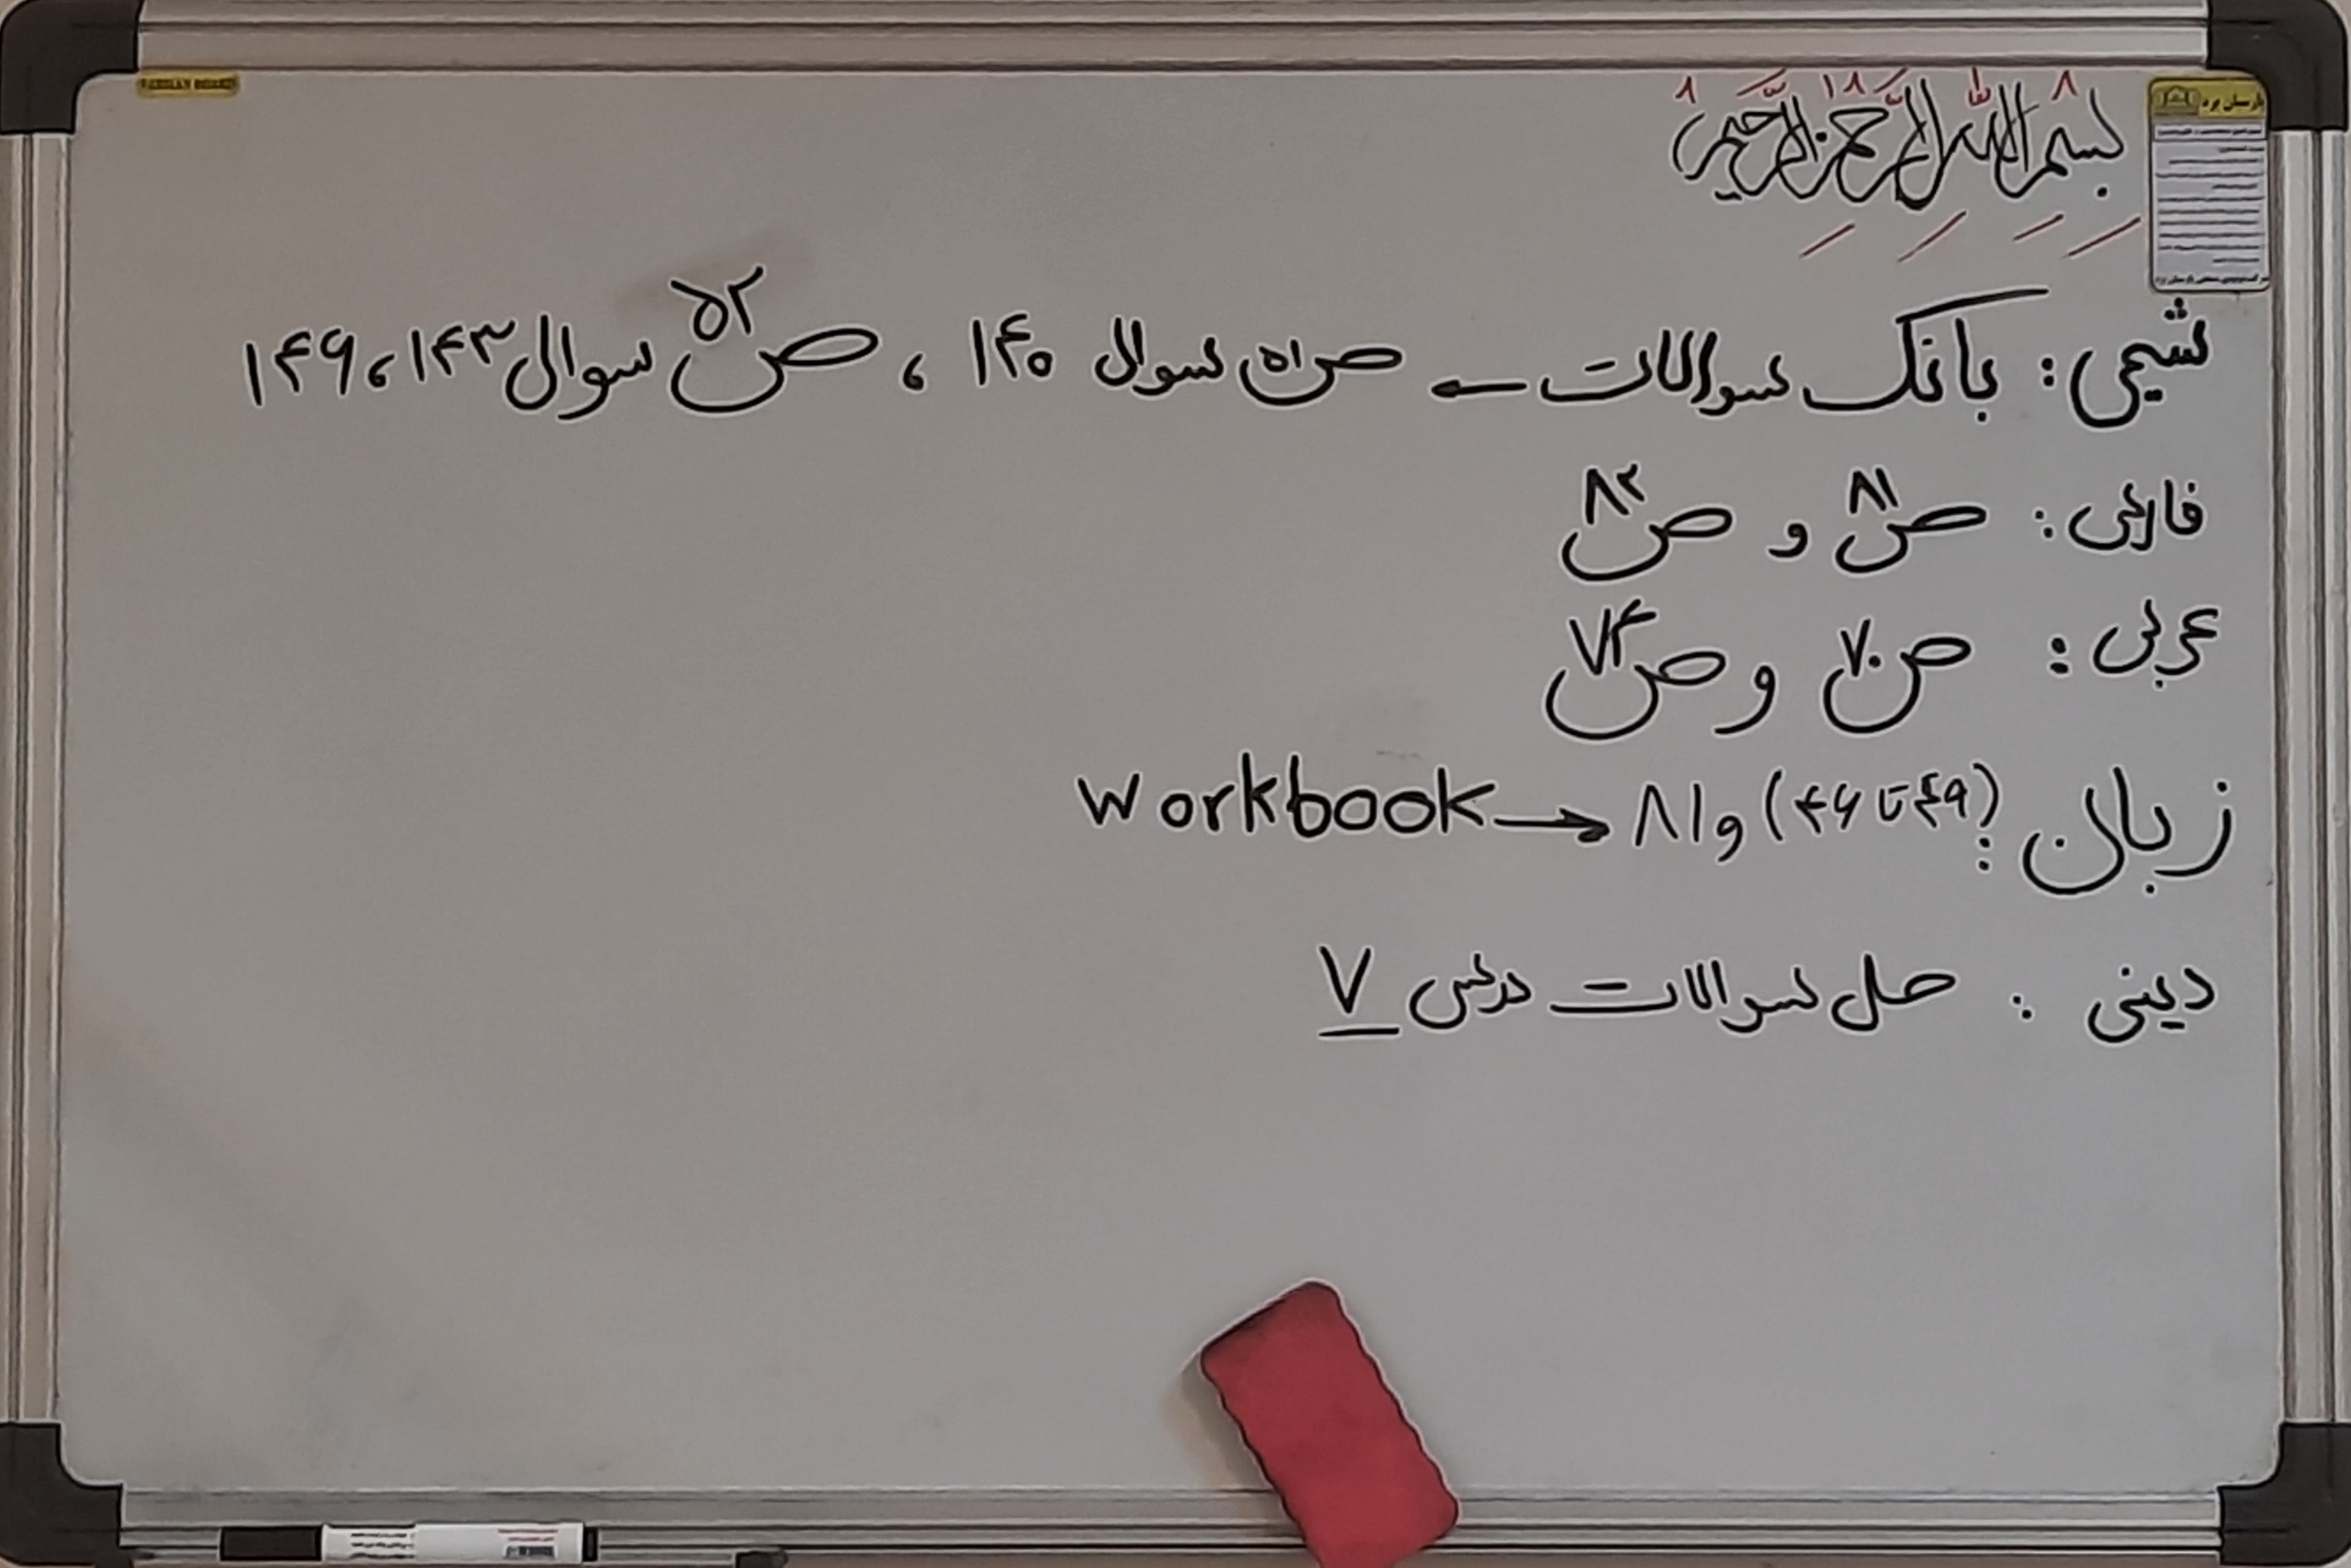 بسم الله الرحمن الرحیم
شیمی : بانک سوالات ← ص ۵۱ سوال ۱۴۰ ، ص ۵۲ سوال ۱۴۳ ، ۱۴۹
فارسی : ص ۸۱ و ص ۸۲
عربی : ص ۷۰ و ص ۷۴
زبان : (۴۶ تا ۴۹) و ۸۱ ← Workbook
دینی : حل سوالات درس ۷
PARSIAN BOARD